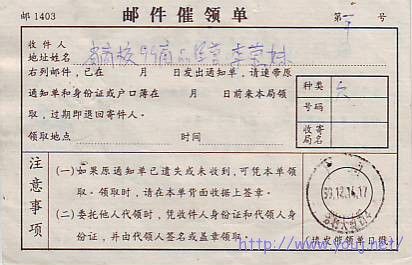 邮1403
邮件催领单
第 号
收件人
地址姓名
右列邮件，已在 月 日发出通知单，请速带原
通知单和身份证或户口簿在 月 日前来本局领
取，过期即退回寄件人。
领取地点 时间
种类
号码
收寄
局名
注意事项
(一)如果原通知单已遗失或未收到，可凭本单领
取。领取时，请在本单背面收据上签章。
(二)委托他人代领时，凭收件人身份证和代领人身
份证，并由代领人签名或盖章领取。
99.12.14.17
(填发催领单日戳)
http://www.youj.net/